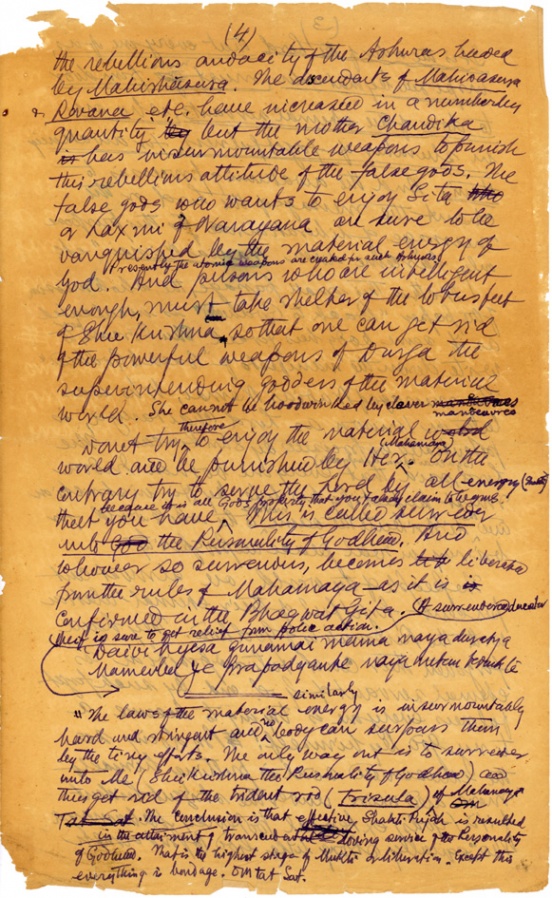 (4)
the rebellious audacity of the Ashuras headed
by Mahishasura. The descendants of Mahisasura
Ravana etc. have increased in a number by
quantity but the mother Chandika
has insurmountable weapons to punish
this rebellious attitude of the false gods. The
false gods who wants to enjoy Sita
or Laxmi of Narayana are sure to be
vanquished by the material energy of
Presently the atomic weapons are created for such Ashuras.
God. And persons who are intelligent
enough, must take shelter of the lotus feet
of Shri Krishna, so that one can get rid
of the powerful weapons of Durga the
superintending goddess of the material
world. She cannot be hoodwinked by clever
manoeuvres
therefore (Mahamaya)
Donot try to enjoy the material
world and be punished by Her. On the
contrary try to serve the Lord by all energy
because it is all God's property that you falsely claim to be yours
that you have. This is called surrender
unto God the Personality of Godhead. And
whoever so surrenders, becomes liberated
from the rules of Mahamaya as it is
confirmed in the Bhagwat Gita. (A surrendered
is sure to get relief from action.
Daivi hyesa gunamai mama maya duratya
Mamebed ye prapadyante maya metan
similarly
"The law of the material energy is insurmountably
hard and stringent and nobody can surpass them
by the tiny efforts. The only way out is to surrender
unto Me (Shri Krishna the Personality of Godhead) and
thus get rid of the trident rod (Trisula) of Mahamaya
Tat Sat. The conclusion is that effective Shakti Pujah is resulted
in the attainment of transcendental loving service of the Personality
of Godhead. That is the highest stage of Mukti or liberation. Except this
everything is bondage. OM tat Sat.